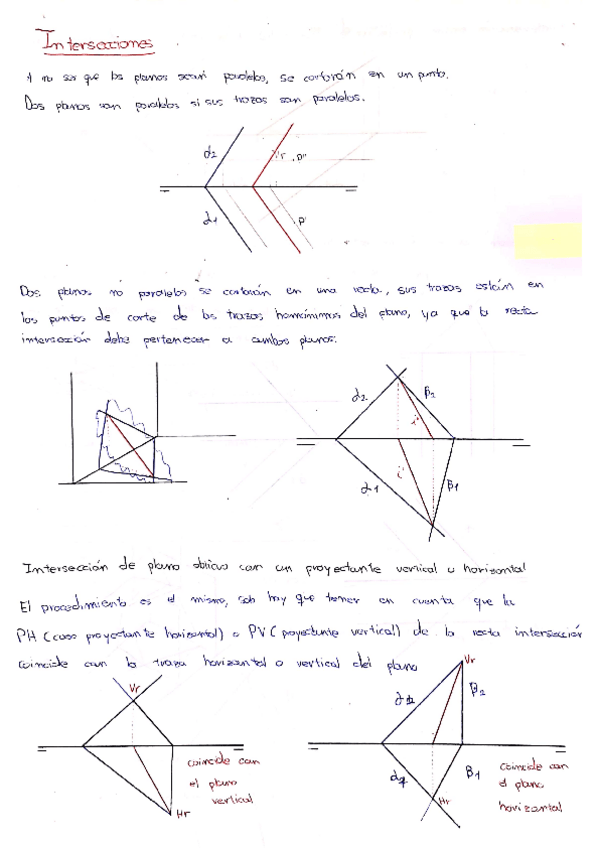 Intersecciones
A no ser que los planos sean paralelos, se cortarán en un punto.
Dos planos son paralelos si sus trazas son paralelos.
α2
Vr
P"
α1
P'
Dos planos no paralelos se cortarán en una recta, sus trazas están en
los puntos de corte de las trazas homónimas del plano, ya que la recta
intersección debe pertenecer a ambos planos.
α2
β2
i"
i'
α1
β1
Intersección de plano oblicuo con un proyectante vertical u horizontal
El procedimiento es el mismo, solo hay que tener en cuenta que la
PH (caso proyectante horizontal) o PV (proyectante vertical) de la recta intersección
coincide con la traza horizontal o vertical del plano
Vr
Vr
α2
β2
coincide con
el plano
vertical
Hr
α1
Hr
β1
Coincide con
el plano
horizontal